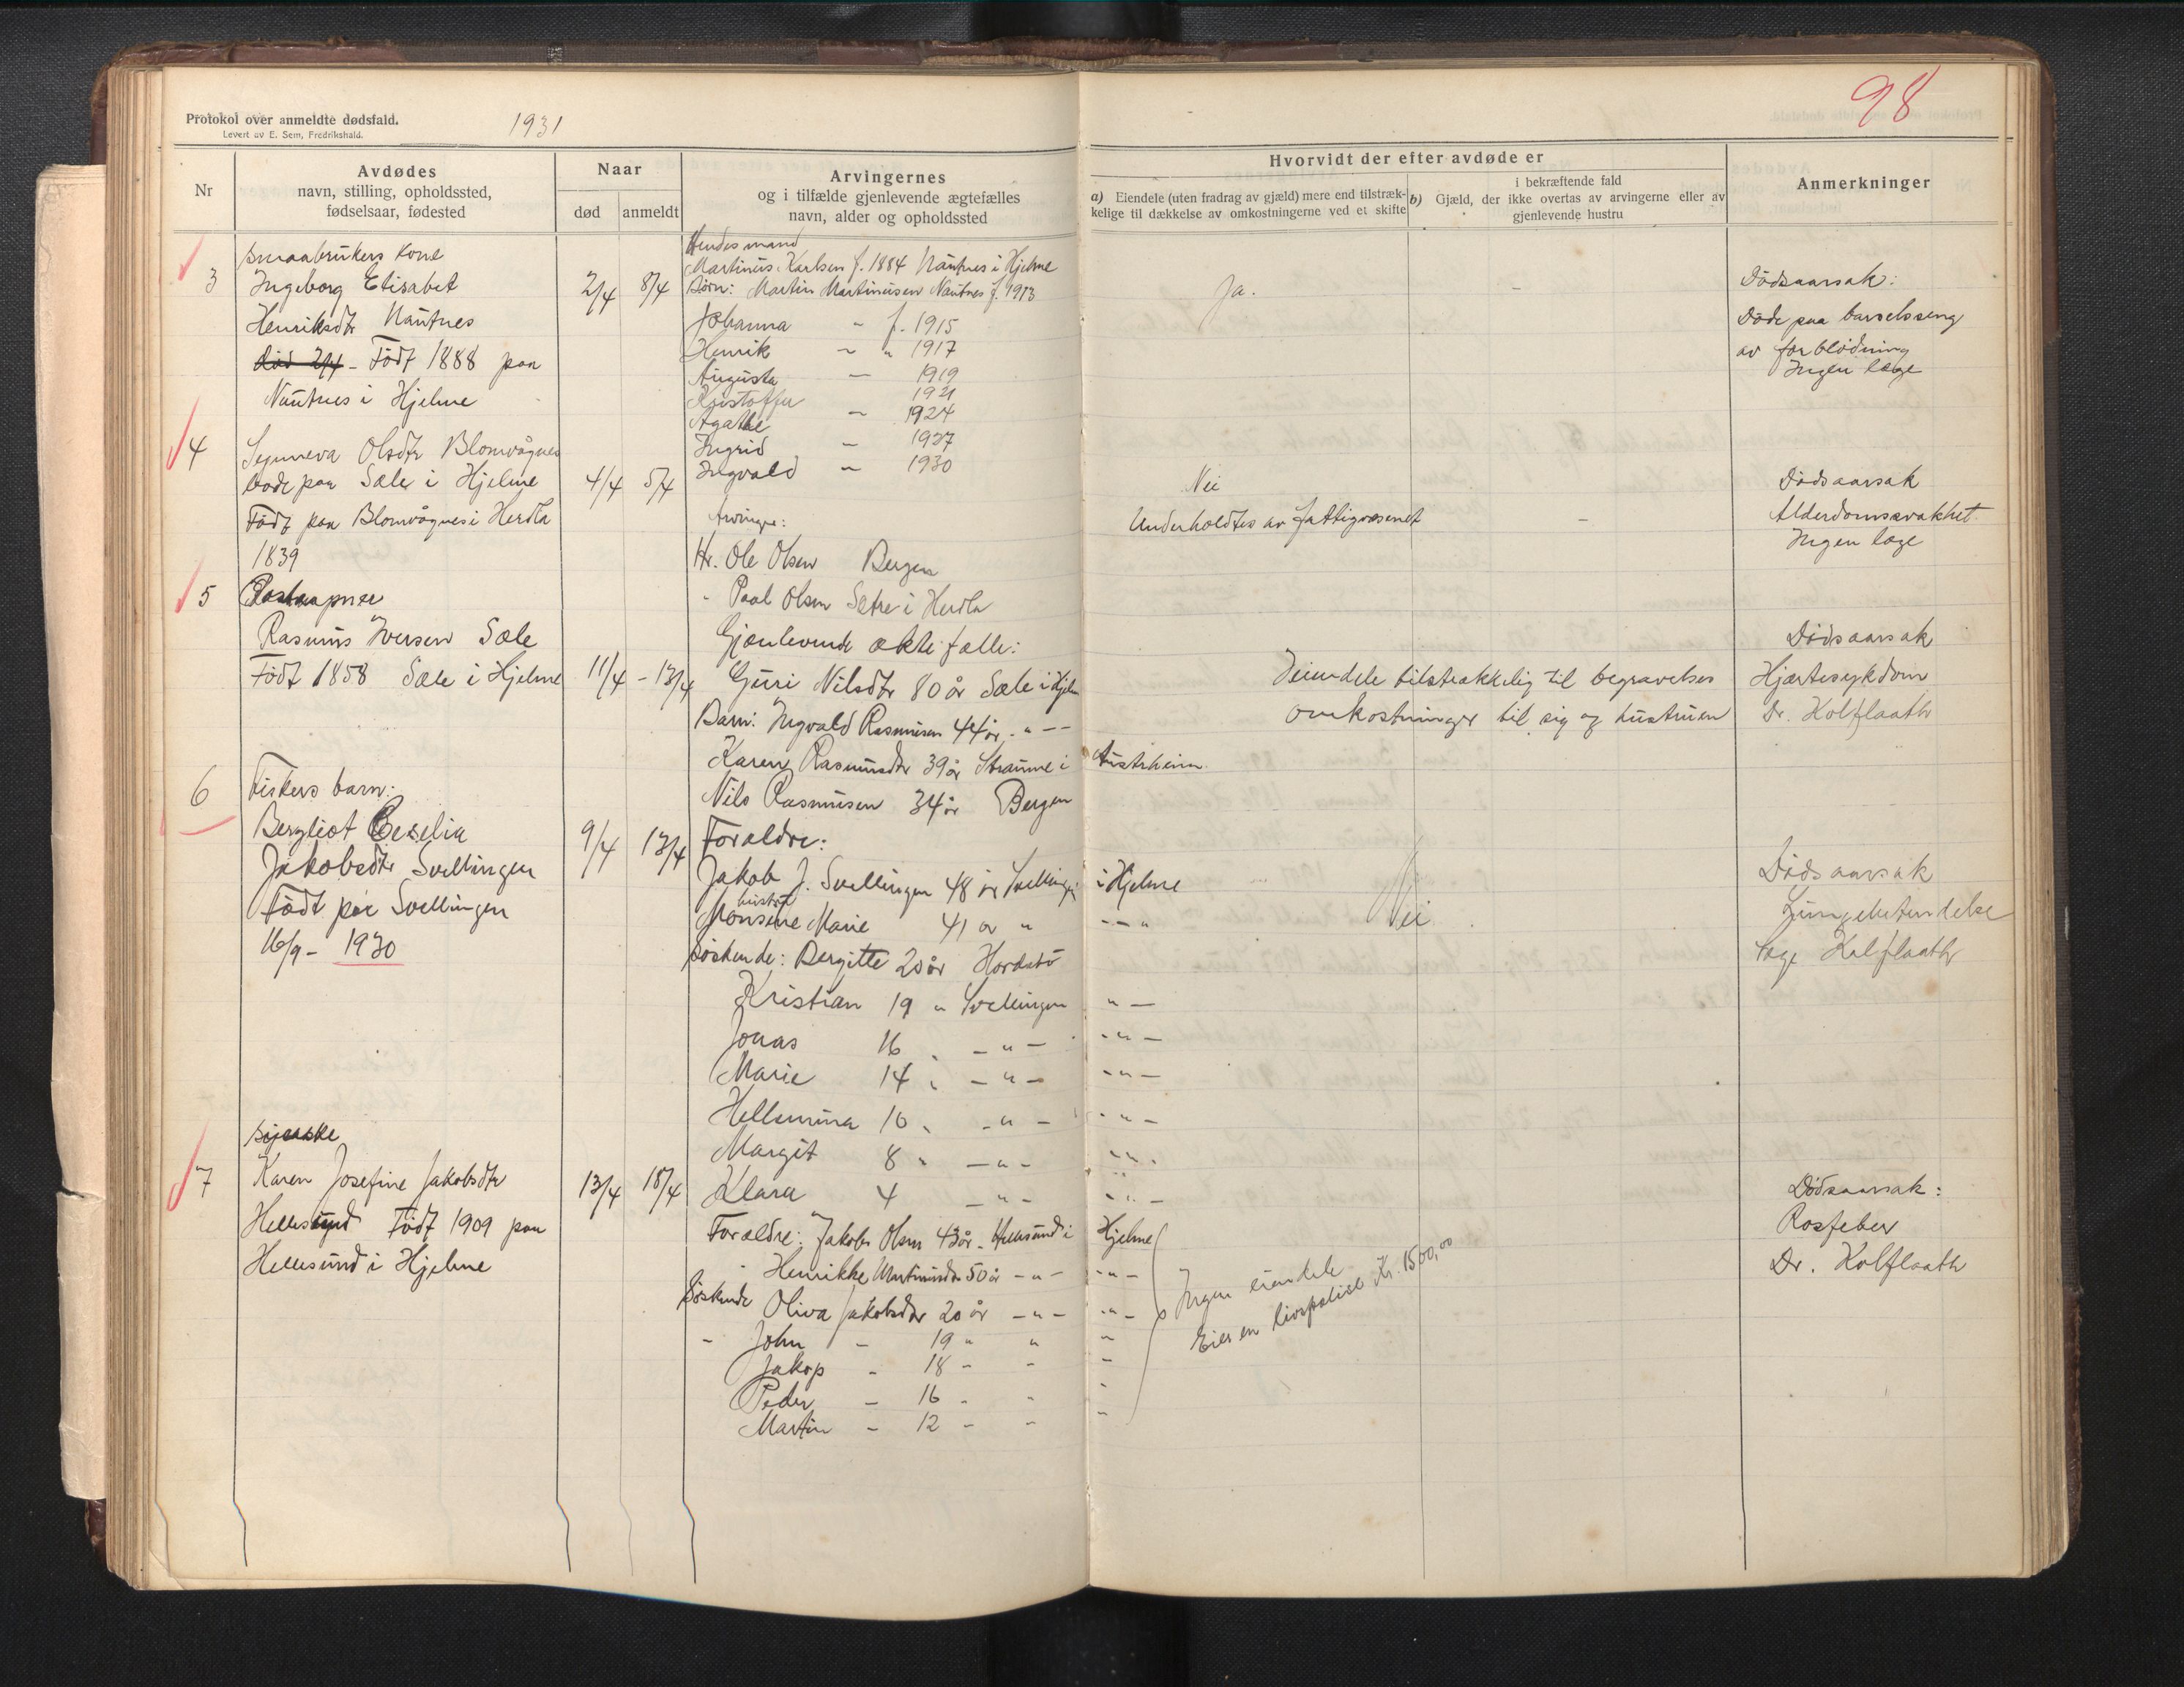 98
Protokol over anmeldte dødsfald.
Levert av E. Sem, Fredrikshald.
1931
Nr
Avdødes
navn, stilling, opholdssted,
fødselsaar, fødested
Naar
død
anmeldt
Arvingernes
og i tilfælde gjenlevende ægtefælles
navn, alder og opholdssted
Hvorvidt der efter avdøde er
a) Eiendele (uten fradrag av gjæld) mere end tilstræk-
kelige til dækkelse av omkostningerne ved et skifte
i bekræftende fald
b) Gjæld, der ikke overtas av arvingerne eller av
gjenlevende hustru
Anmerkninger
3
Smaabrukers kone
Ingeborg Elisabet
Henriksdtr Nautnes
Død 2/4 - Født 1888 paa
Nautnes i Hjelme
2/4
8/4
Hendes mand
Martinus Karlsen f. 1884 Nautnes i Hjelme
Børn: Martin Martinusen Nautnes f. 1913
Johanna - f. 1915
Henrik - " 1917
Augusta - 1919
Kristoffer 1921
Agathe - 1924
Ingrid - 1927
Ingvald - 1930
Ja.
-
Dødsaarsak:
Døde paa barselsseng
av forblødning
Ingen læge
4
Synneva Olsdtr Blomvågnes
bode paa Sæle i Hjelme
Født paa Blomvågnes i Herdla
1839
4/4
5/4
Arvinger:
Hr. Ole Olsen Bergen
- Paal Olsen Sætre i Herdla
Nei
Underholdtes av fattigvæsenet
-
Dødsaarsak
Alderdomssvakhet
Ingen læge
5
Postaapner
Rasmus Iversen Sæle
Født 1858 Sæle i Hjelme
11/4 - 13/4
Gjenlevende ektefælle:
Guri Nilsdtr 80 år Sæle i Hjelm
Barn: Ingvald Rasmusen 44 år - " - -
Karen Rasmusdtr 39 år Straume i Austrheim
Nils Rasmusen 34 år Bergen
Eiendele tilstrækkelig til begravelses
omkostninger til sig og hustruen
Dødsaarsak
Hjærtesykdom
Dr. Kolflaath
6
Fiskers barn:
Bergliot Ceselia
Jakobsdtr Svellingen
Født paa Svellingen
16/9 - 1930
9/4
13/4
Forældre:
Jakob J. Svellingen 48 år Svellingen i Hjelme
hustru
Monsene Marie 41 år " - - "
Søskende: Bergitte 20 år Hordabø
Kristian 19 " Svellingen " -
Jonas 16 " - " - - " -
Marie 14 " - " - - " -
Hellemina 10 " - " - - " -
Margit 8 " - " - - " -
Klara 4 - " - - " -
Nei
Dødsaarsak
Lungebetendelse
Læge Kolflaath
7
Sjerske
Karen Josefine Jakobsdtr
Hellesund Født 1909 paa
Hellesund i Hjelme
13/4
18/4
Forældre: Jakob Olsen 43 år - Hellesund i Hjelme
- Henrikke Martinusdtr 50 år - " - - " -
Søskende Oliva Jakobsdtr 20 år - " - - " -
- John - 19 " " "
Jakop - 18 - - -
Peder - 16 - - -
Martin - 12 - - -
Ingen eiendele
Eier en livspolise Kr. 1500,00
Dødsaarsak:
Rosfeber
Dr. Kolflaath